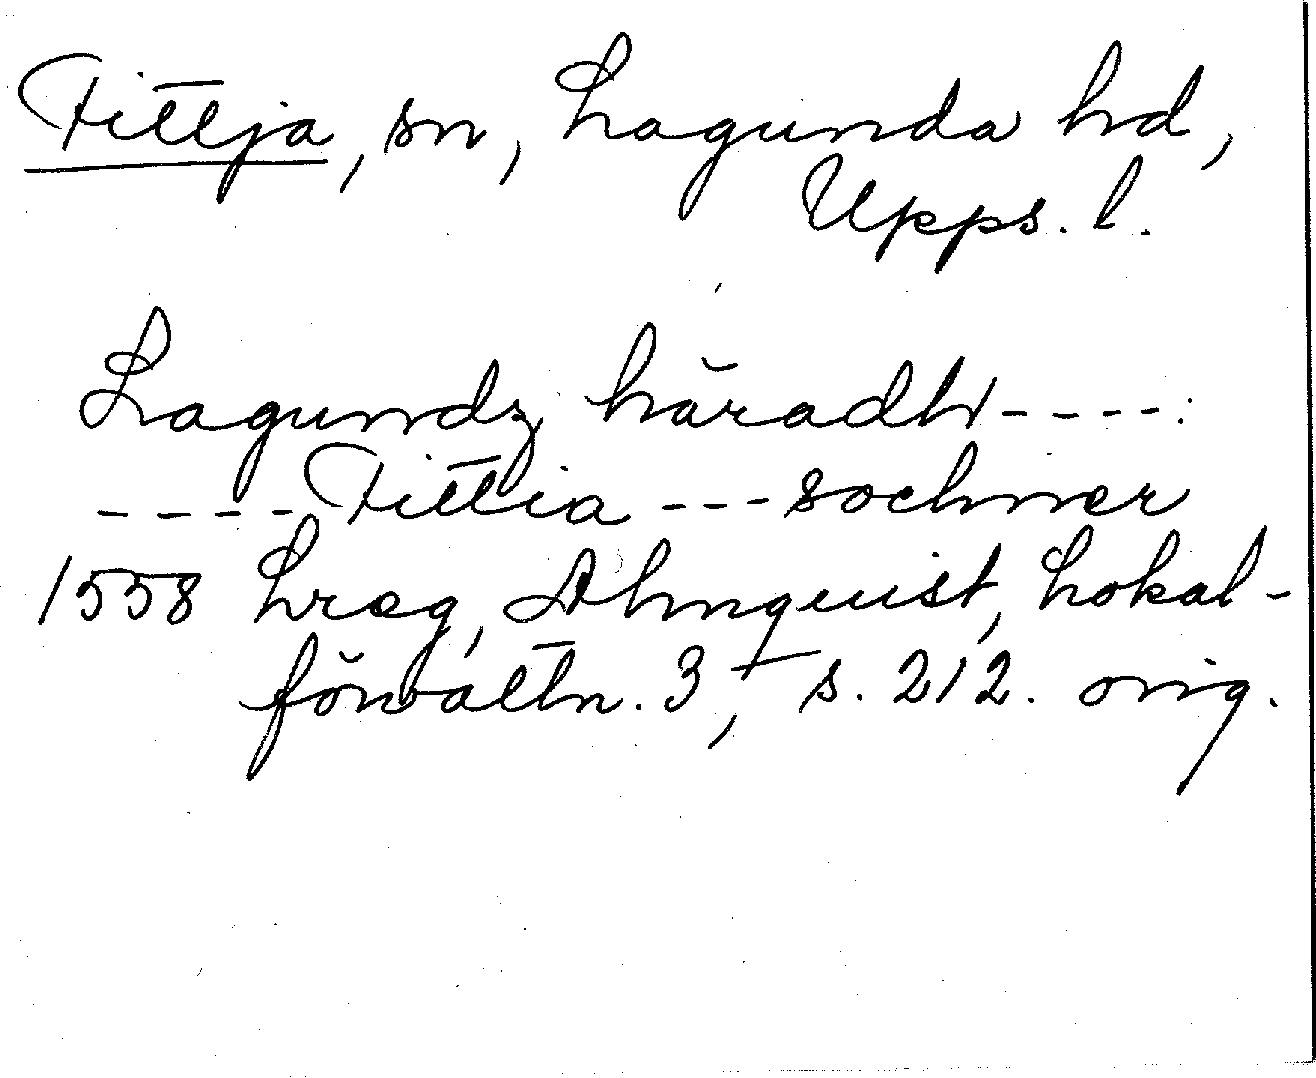 Fittja, sn, Lagunda hd,
Upps. l.
Lagundz häradh ----:
---- Fittia --- sochner
1558 Lreg, Almquist, Lokal-
förvaltn. 3, s. 212. orig.